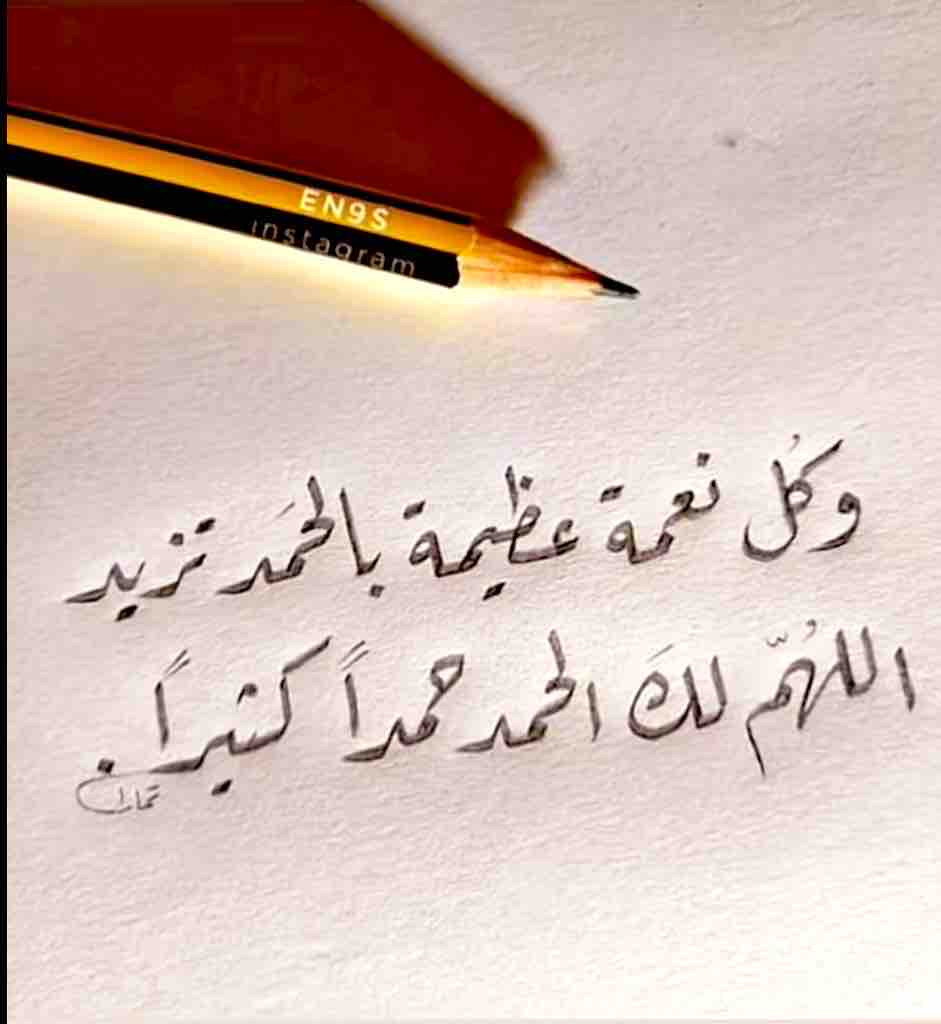 EN9S
instagram
وكُل نعمة عظيمة بالحمَد تزيد
اللهُمّ لكَ الحمد حمداً كثيراً.